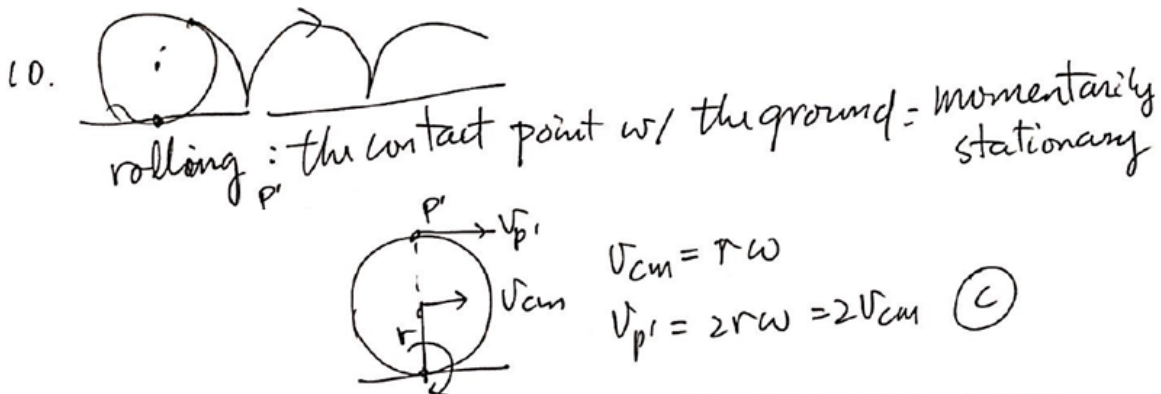 10.
rolling : the contact point w/ the ground = momentarily
stationary
p'
p'
v_p'
v_cm = rω
v_cm
r
v_p' = 2rω = 2v_cm (c)